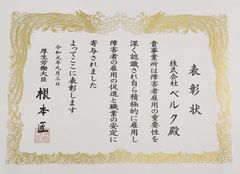 表彰状
株式会社ベルク殿
貴事業所は障害者雇用の重要性を
深く認識され自ら積極的に雇用し
障害者の雇用の促進と職業の安定に
寄与されました
よってここに表彰します
令和元年九月三日
厚生労働大臣
根本匠